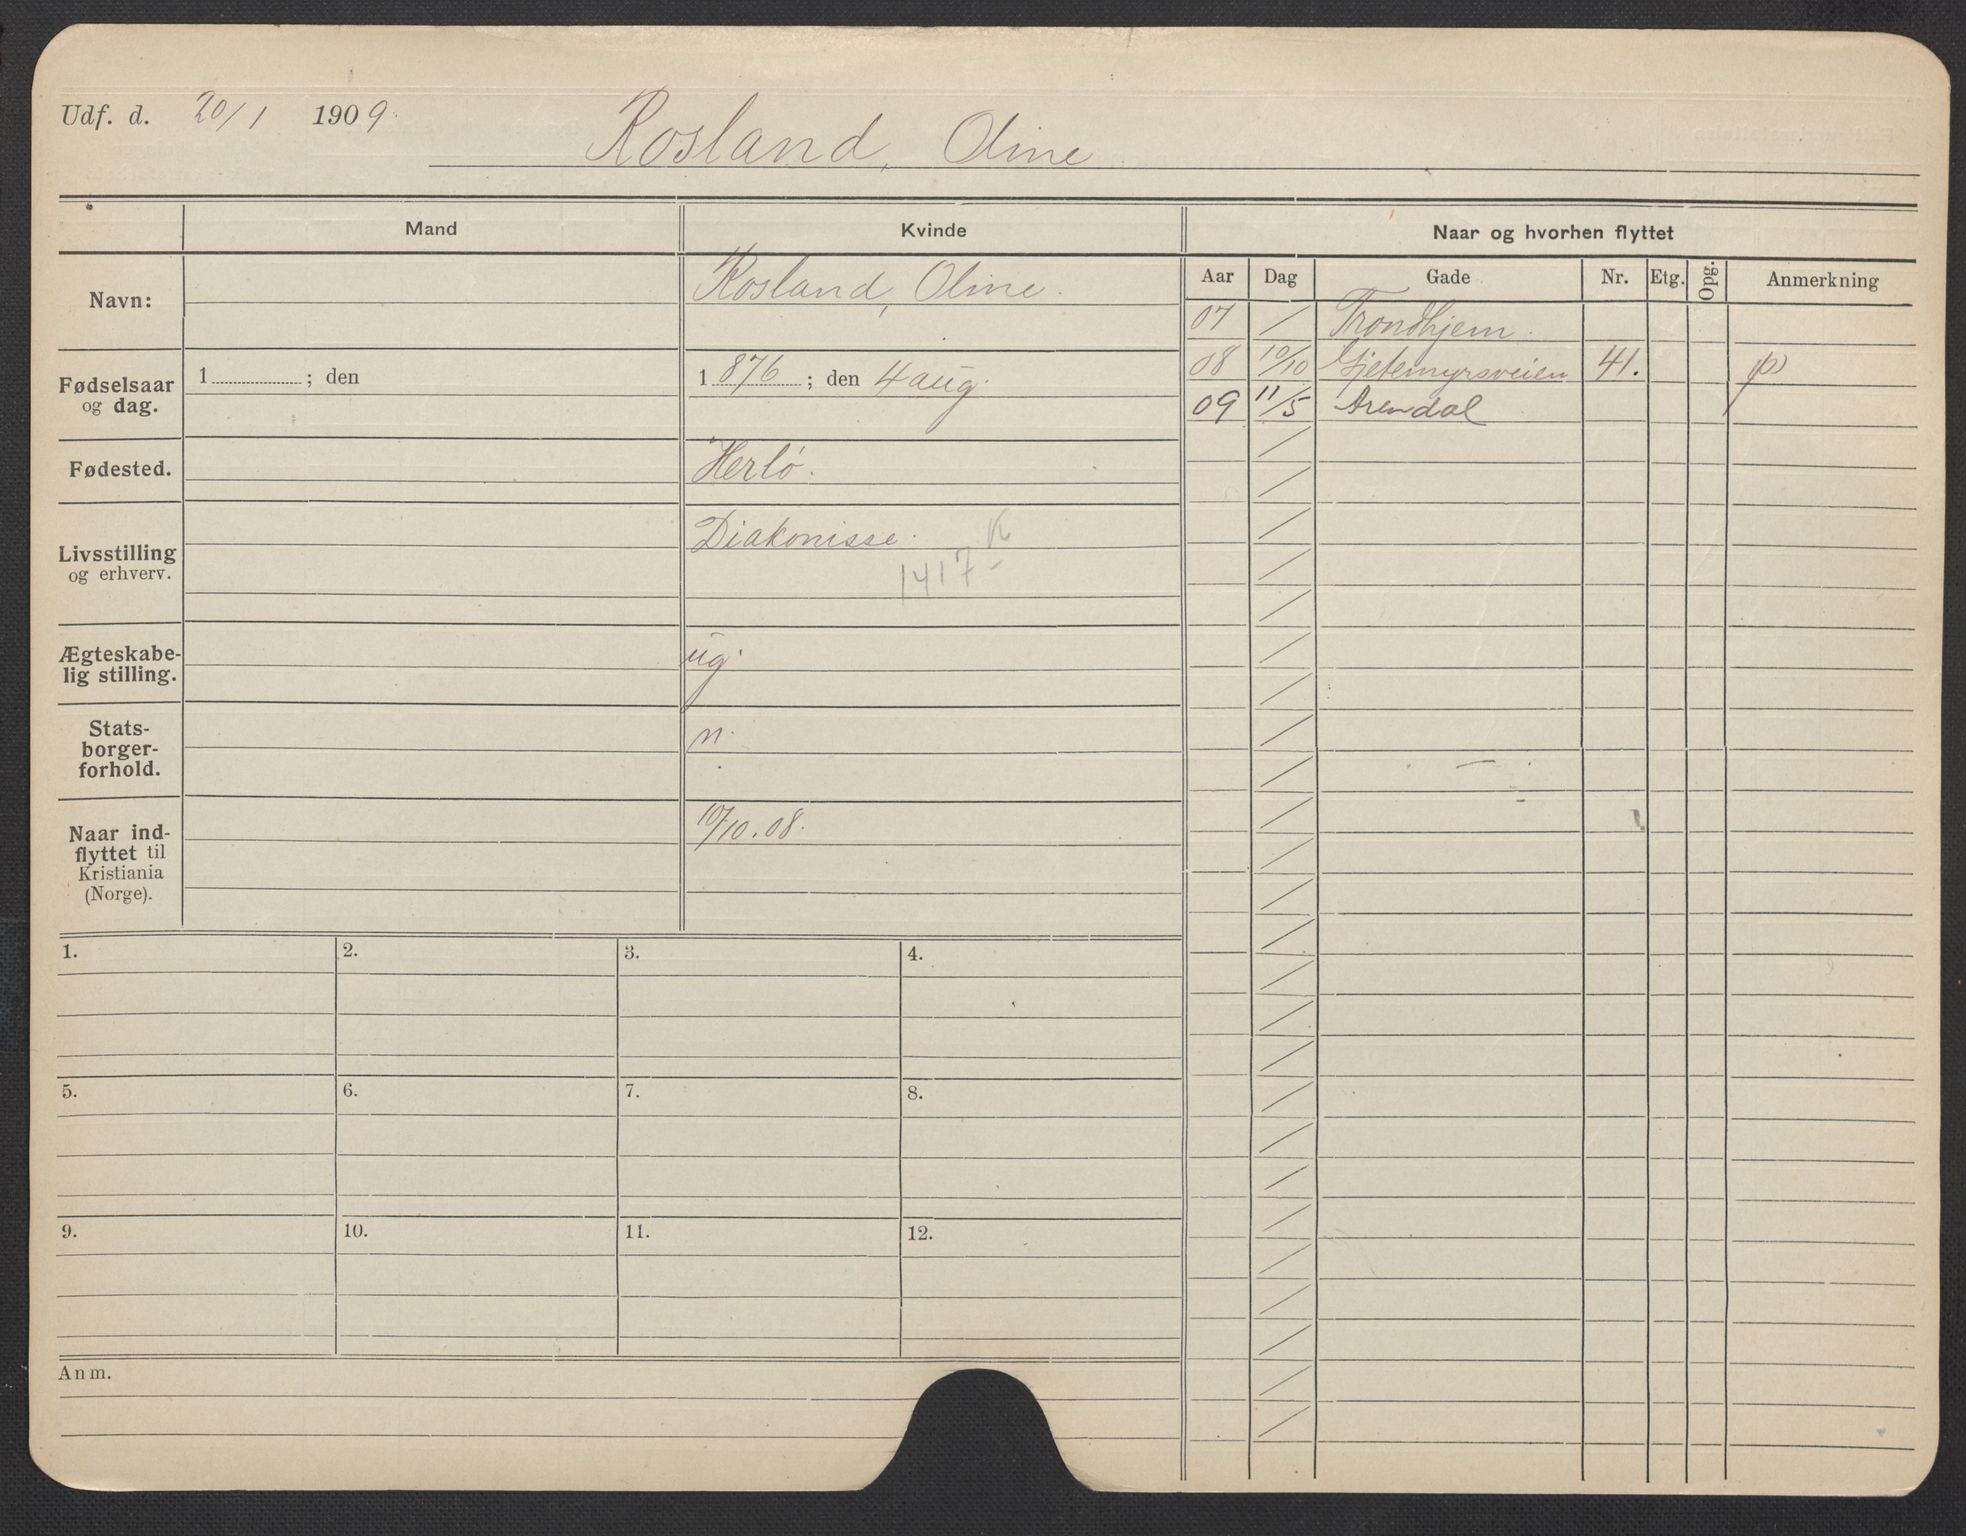 Udf. d. 20/1 1909.
Rosland, Oline
Mand
Kvinde
Naar og hvorhen flyttet
Navn:
Rosland, Oline.
Aar Dag Gade Nr. Etg. Opg. Anmerkning
07 / Trondhjem.
08 10/10 Gjetemyrsveien 41. p)
09 11/5 Arendal
Fødselsaar
og dag.
1 ; den
1876 ; den 4 aug.
Fødested.
Herlö.
Livsstilling
og erhverv.
Diakonisse.
1417 K
Ægteskabe-
lig stilling.
ug.
Stats-
borger-
forhold.
n.
Naar ind-
flyttet til
Kristiania
(Norge).
10/10.08.
1. 2. 3. 4.
5. 6. 7. 8.
9. 10. 11. 12.
Anm.